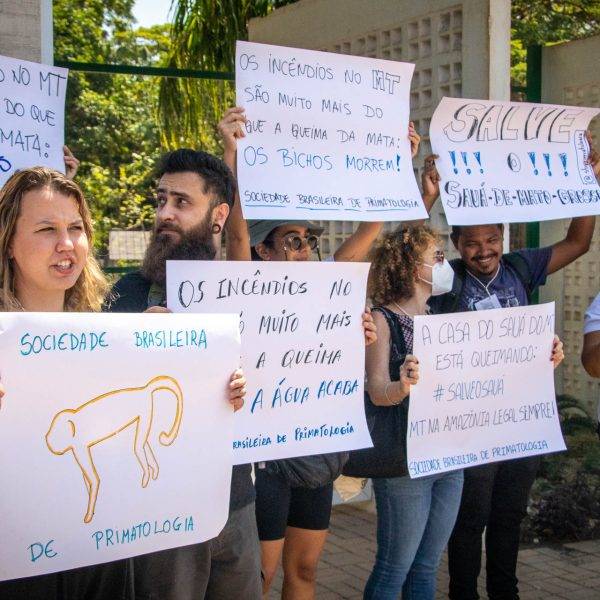 NO MT
DO QUE
MATA:
OS INCÊNDIOS NO MT
SÃO MUITO MAIS DO
QUE A QUEIMA DA MATA:
OS BICHOS MORREM!
SOCIEDADE BRASILEIRA DE PRIMATOLOGIA
SALVE
!!! O !!!
SAUÁ-DE-MATO-GROSSO
OS INCÊNDIOS NO
MUITO MAIS
A QUEIMA
A ÁGUA ACABA
BRASILEIRA DE PRIMATOLOGIA
A CASA DO SAUÁ DO MT
ESTÁ QUEIMANDO:
#SALVEOSAUÁ
MT NA AMAZÔNIA LEGAL SEMPRE!
SOCIEDADE BRASILEIRA DE PRIMATOLOGIA
SOCIEDADE BRASILEIRA
DE PRIMATOLOGIA